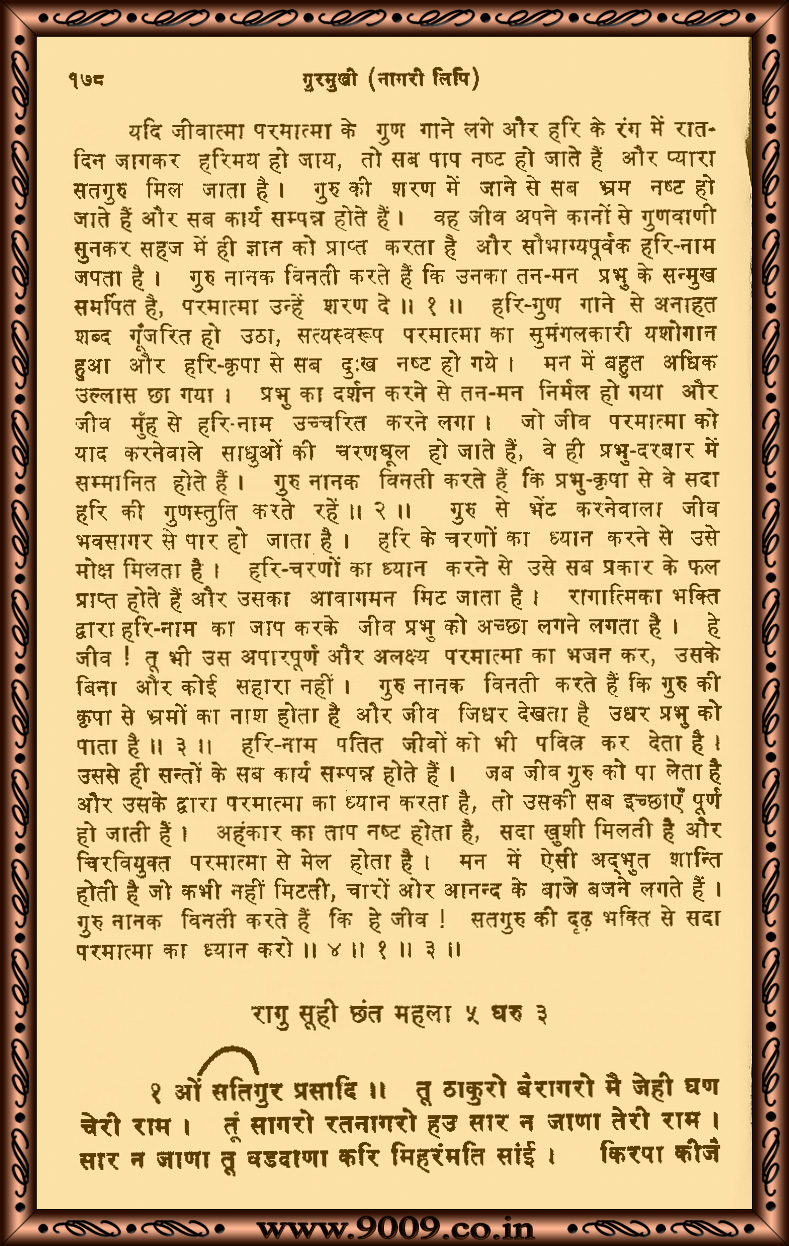 १७८ गुरमुखी (नागरी लिपि)
यदि जीवात्मा परमात्मा के गुण गाने लगे और हरि के रंग में रात-
दिन जागकर हरिमय हो जाय, तो सब पाप नष्ट हो जाते हैं और प्यारा
सतगुरु मिल जाता है। गुरु की शरण में जाने से सब भ्रम नष्ट हो
जाते हैं और सब कार्य सम्पन्न होते हैं। वह जीव अपने कानों से गुणवाणी
सुनकर सहज में ही ज्ञान को प्राप्त करता है और सौभाग्यपूर्वक हरि-नाम
जपता है। गुरु नानक विनती करते हैं कि उनका तन-मन प्रभु के सन्मुख
समर्पित है, परमात्मा उन्हें शरण दे॥ १॥ हरि-गुण गाने से अनाहत
शब्द गूँजरित हो उठा, सत्यस्वरूप परमात्मा का सुमंगलकारी यशोगान
हुआ और हरि-कृपा से सब दुःख नष्ट हो गये। मन में बहुत अधिक
उल्लास छा गया। प्रभु का दर्शन करने से तन-मन निर्मल हो गया और
जीव मुँह से हरि-नाम उच्चरित करने लगा। जो जीव परमात्मा को
याद करनेवाले साधुओं की चरणधूल हो जाते हैं, वे ही प्रभु-दरबार में
सम्मानित होते हैं। गुरु नानक विनती करते हैं कि प्रभु-कृपा से वे सदा
हरि की गुणस्तुति करते रहें॥ २॥ गुरु से भेंट करनेवाला जीव
भवसागर से पार हो जाता है। हरि के चरणों का ध्यान करने से उसे
मोक्ष मिलता है। हरि-चरणों का ध्यान करने से उसे सब प्रकार के फल
प्राप्त होते हैं और उसका आवागमन मिट जाता है। रागात्मिका भक्ति
द्वारा हरि-नाम का जाप करके जीव प्रभु को अच्छा लगने लगता है। हे
जीव! तू भी उस अपारपूर्ण और अलक्ष्य परमात्मा का भजन कर, उसके
बिना और कोई सहारा नहीं। गुरु नानक विनती करते हैं कि गुरु की
कृपा से भ्रमों का नाश होता है और जीव जिधर देखता है उधर प्रभु को
पाता है॥ ३॥ हरि-नाम पतित जीवों को भी पवित्र कर देता है।
उससे ही सन्तों के सब कार्य सम्पन्न होते हैं। जब जीव गुरु को पा लेता है
और उसके द्वारा परमात्मा का ध्यान करता है, तो उसकी सब इच्छाएँ पूर्ण
हो जाती हैं। अहंकार का ताप नष्ट होता है, सदा खुशी मिलती है और
चिरवियुक्त परमात्मा से मेल होता है। मन में ऐसी अद्भुत शान्ति
होती है जो कभी नहीं मिटती, चारों ओर आनन्द के बाजे बजने लगते हैं।
गुरु नानक विनती करते हैं कि हे जीव! सतगुरु की दृढ़ भक्ति से सदा
परमात्मा का ध्यान करो॥ ४॥ १॥ ३॥
रागु सूही छंत महला ५ घरु ३
१ ओं सतिगुर प्रसादि॥ तू ठाकुरो बैरागरो मै जेही घण
चेरी राम। तूं सागरो रतनागरो हउ सार न जाणा तेरी राम।
सार न जाणा तू वडदाणा करि मिहरंमति सांई। किरपा कीजै
www.9009.co.in